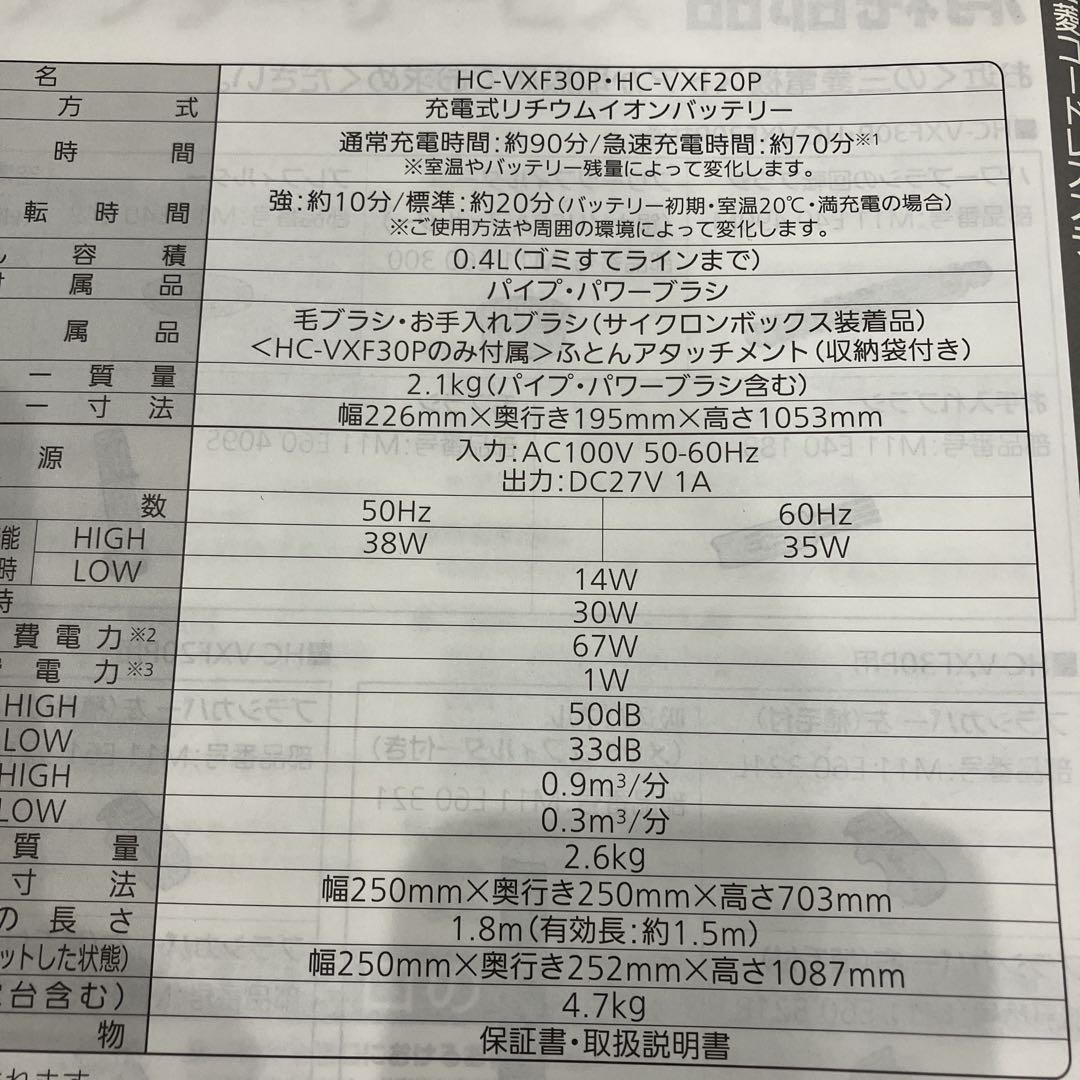 名 HC-VXF30P・HC-VXF20P
方 式 充電式リチウムイオンバッテリー
時 間 通常充電時間:約90分/急速充電時間:約70分※1
※室温やバッテリー残量によって変化します。
転 時 間 強:約10分/標準:約20分(バッテリー初期・室温20℃・満充電の場合)
※ご使用方法や周囲の環境によって変化します。
容 積 0.4L(ゴミすてラインまで)
属 品 パイプ・パワーブラシ
属 品 毛ブラシ・お手入れブラシ(サイクロンボックス装着品)
<HC-VXF30Pのみ付属>ふとんアタッチメント(収納袋付き)
ー 質 量 2.1kg(パイプ・パワーブラシ含む)
ー 寸 法 幅226mm×奥行き195mm×高さ1053mm
源 入力:AC100V 50-60Hz
出力:DC27V 1A
数 50Hz 60Hz
能 HIGH 38W 35W
時 LOW 14W
時 30W
費電力※2 67W
電 力※3 1W
HIGH 50dB
LOW 33dB
HIGH 0.9m³/分
LOW 0.3m³/分
質 量 2.6kg
寸 法 幅250mm×奥行き250mm×高さ703mm
の 長 さ 1.8m(有効長:約1.5m)
ットした状態) 幅250mm×奥行き252mm×高さ1087mm
台含む) 4.7kg
物 保証書・取扱説明書
菱コードレススティ